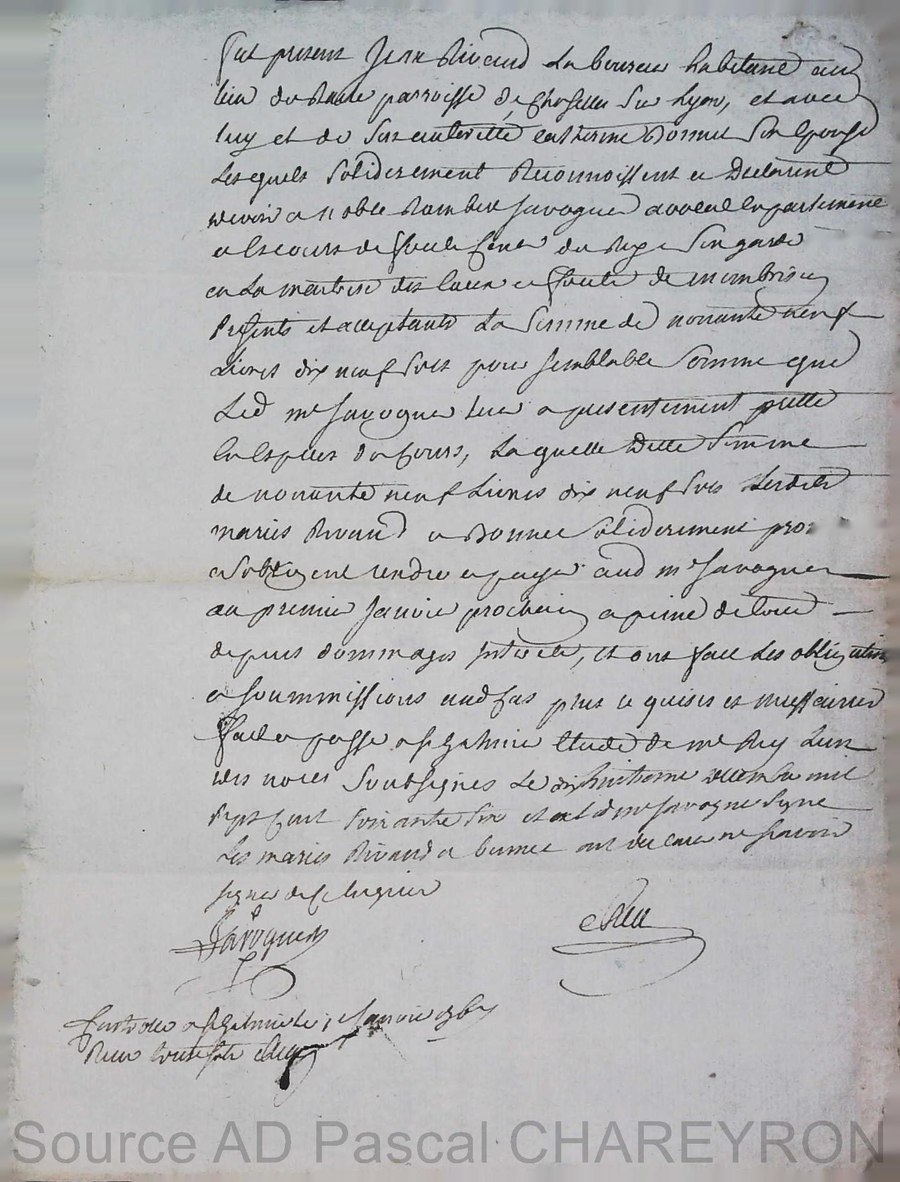 fut present Jean Rivaud Laboureur habitant au
lieu du parroisse de Chaselles Sur Lyon, et avec
luy et de Son authorité catherine Bonnet Son Epouse
Lesquels Soliderement Reconnoissent et Declarent
devoir a Noble Rambert Javogues avocat en parlement
et es cours de forest Con.er du Roy Son garde
en La maitrise des Eaux et forets de monbrison
Presents et acceptants La Somme de nonante neuf
Livres dix neuf Sols pour Semblable Somme que
Led m.e Javogues leur a presentement prette
En Especes du Cours, La quelle Ditte Somme
de nonante neuf Livres dix neuf Sols Lesdits
maries Rivaud et Bonnet Soliderement pro
et Sobligent rendre et payer aud m.e Javogues
au premier Janvier prochain a peine de tous
depens dommages Interets, et ont fait Les obligations
et Soummissions aud cas plus requises et necessaires
fait et passé a S.t Galmier Etude de m.e Rey L'un
des no.res Soussignés Le dixhuitieme decembre mil
Sept Cent Soixante Six et a led m.e Javogues Signé
Les maries Rivaud et bonnet ont declaré ne Sçavoir
signer de ce Enquis
Javogues
Rey
Controllé a S.t Galmier le janvier 1767
Reçu